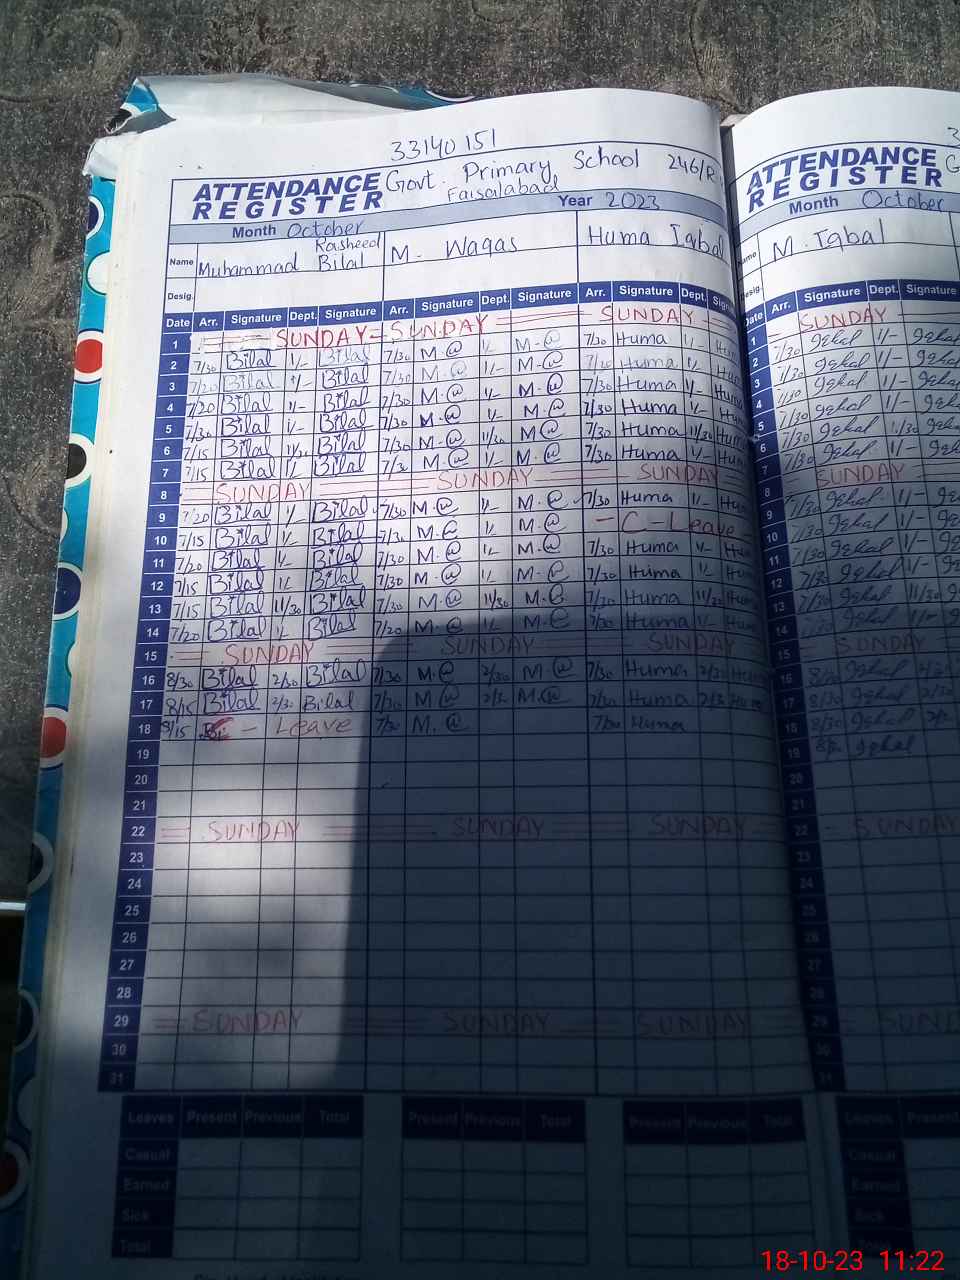 33140151
ATTENDANCE REGISTER Govt. Primary School 246/R
Faisalabad
Month October Year 2023
Name Muhammad Rasheed Bilal M. Waqas Huma Iqbal
Desig.
Date Arr. Signature Dept. Signature Arr. Signature Dept. Signature Arr. Signature Dept.
1 SUNDAY SUNDAY SUNDAY
2 7/30 Bilal 1/- Bilal 7/30 M.@ 1/- M.@ 7/30 Huma 1/-
3 7/20 Bilal 1/- Bilal 7/30 M.@ 1/- M.@ Huma 1/-
4 7/20 Bilal 1/- Bilal 7/30 M.@ 1/- M.@ 7/30 Huma 1/-
5 7/30 Bilal 1/- Bilal 7/30 M.@ 1/- M.@ 7/30 Huma 1/-
6 7/15 Bilal Bilal 7/30 M.@ 11/30 M.@ 7/30 Huma 11/30
7 7/15 Bilal 1/- Bilal M.@ 1/- M.@ 7/30 Huma 1/-
8 SUNDAY SUNDAY SUNDAY
9 7/20 Bilal 1/- Bilal 7/30 M.@ 1/- M.@ 7/30 Huma 1/-
10 7/15 Bilal 1/- Bilal M.@ 1/- M.@ - C - Leave
11 7/20 Bilal 1/- Bilal 7/30 M.@ 1/- M.@ 7/30 Huma 1/-
12 7/15 Bilal 1/- Bilal 7/30 M.@ 1/- M.@ 7/30 Huma 1/-
13 7/15 Bilal 11/30 Bilal 7/30 M.@ 11/30 M.@ 7/30 Huma 11/30
14 7/20 Bilal 1/- Bilal 7/20 M.@ 1/- M.@ 7/30 Huma 1/-
15 SUNDAY SUNDAY SUNDAY
16 8/30 Bilal 2/30 Bilal 7/30 M.@ 2/30 M.@ 7/30 Huma 2/30 Huma
17 8/15 Bilal 2/30 Bilal 7/30 M.@ M.@ 7/30 Huma
18 8/15 - Leave 7/30 M.@ Huma
19
20
21
22 SUNDAY SUNDAY SUNDAY
23
24
25
26
27
28
29 SUNDAY SUNDAY SUNDAY
30
31
Leaves Present Previous Total Present Previous Total Present Previous Total
Casual
Earned
Sick
Total
ATTENDANCE REGISTER
Month October
M. Iqbal
Desig.
Date Arr. Signature Dept. Signature
1 SUNDAY
2 7/30 Iqbal 1/- Iqbal
3 7/30 Iqbal 1/-
4 7/30 Iqbal 1/-
5 7/30 Iqbal 1/-
6 7/30 Iqbal 11/30
7 7/30 Iqbal 1/-
8 SUNDAY
9 Iqbal 1/-
10 7/30 Iqbal 1/-
11 7/30 Iqbal 1/-
12 7/30 Iqbal 1/-
13 7/30 Iqbal 11/30
14 Iqbal 1/-
15 SUNDAY
16 Iqbal
17 8/30 Iqbal 2/30
18 8/30 Iqbal
19 Iqbal
20
21
22 SUNDAY
23
24
25
26
27
28
29
30
Leaves Present
Casual
Earned
18-10-23 11:22